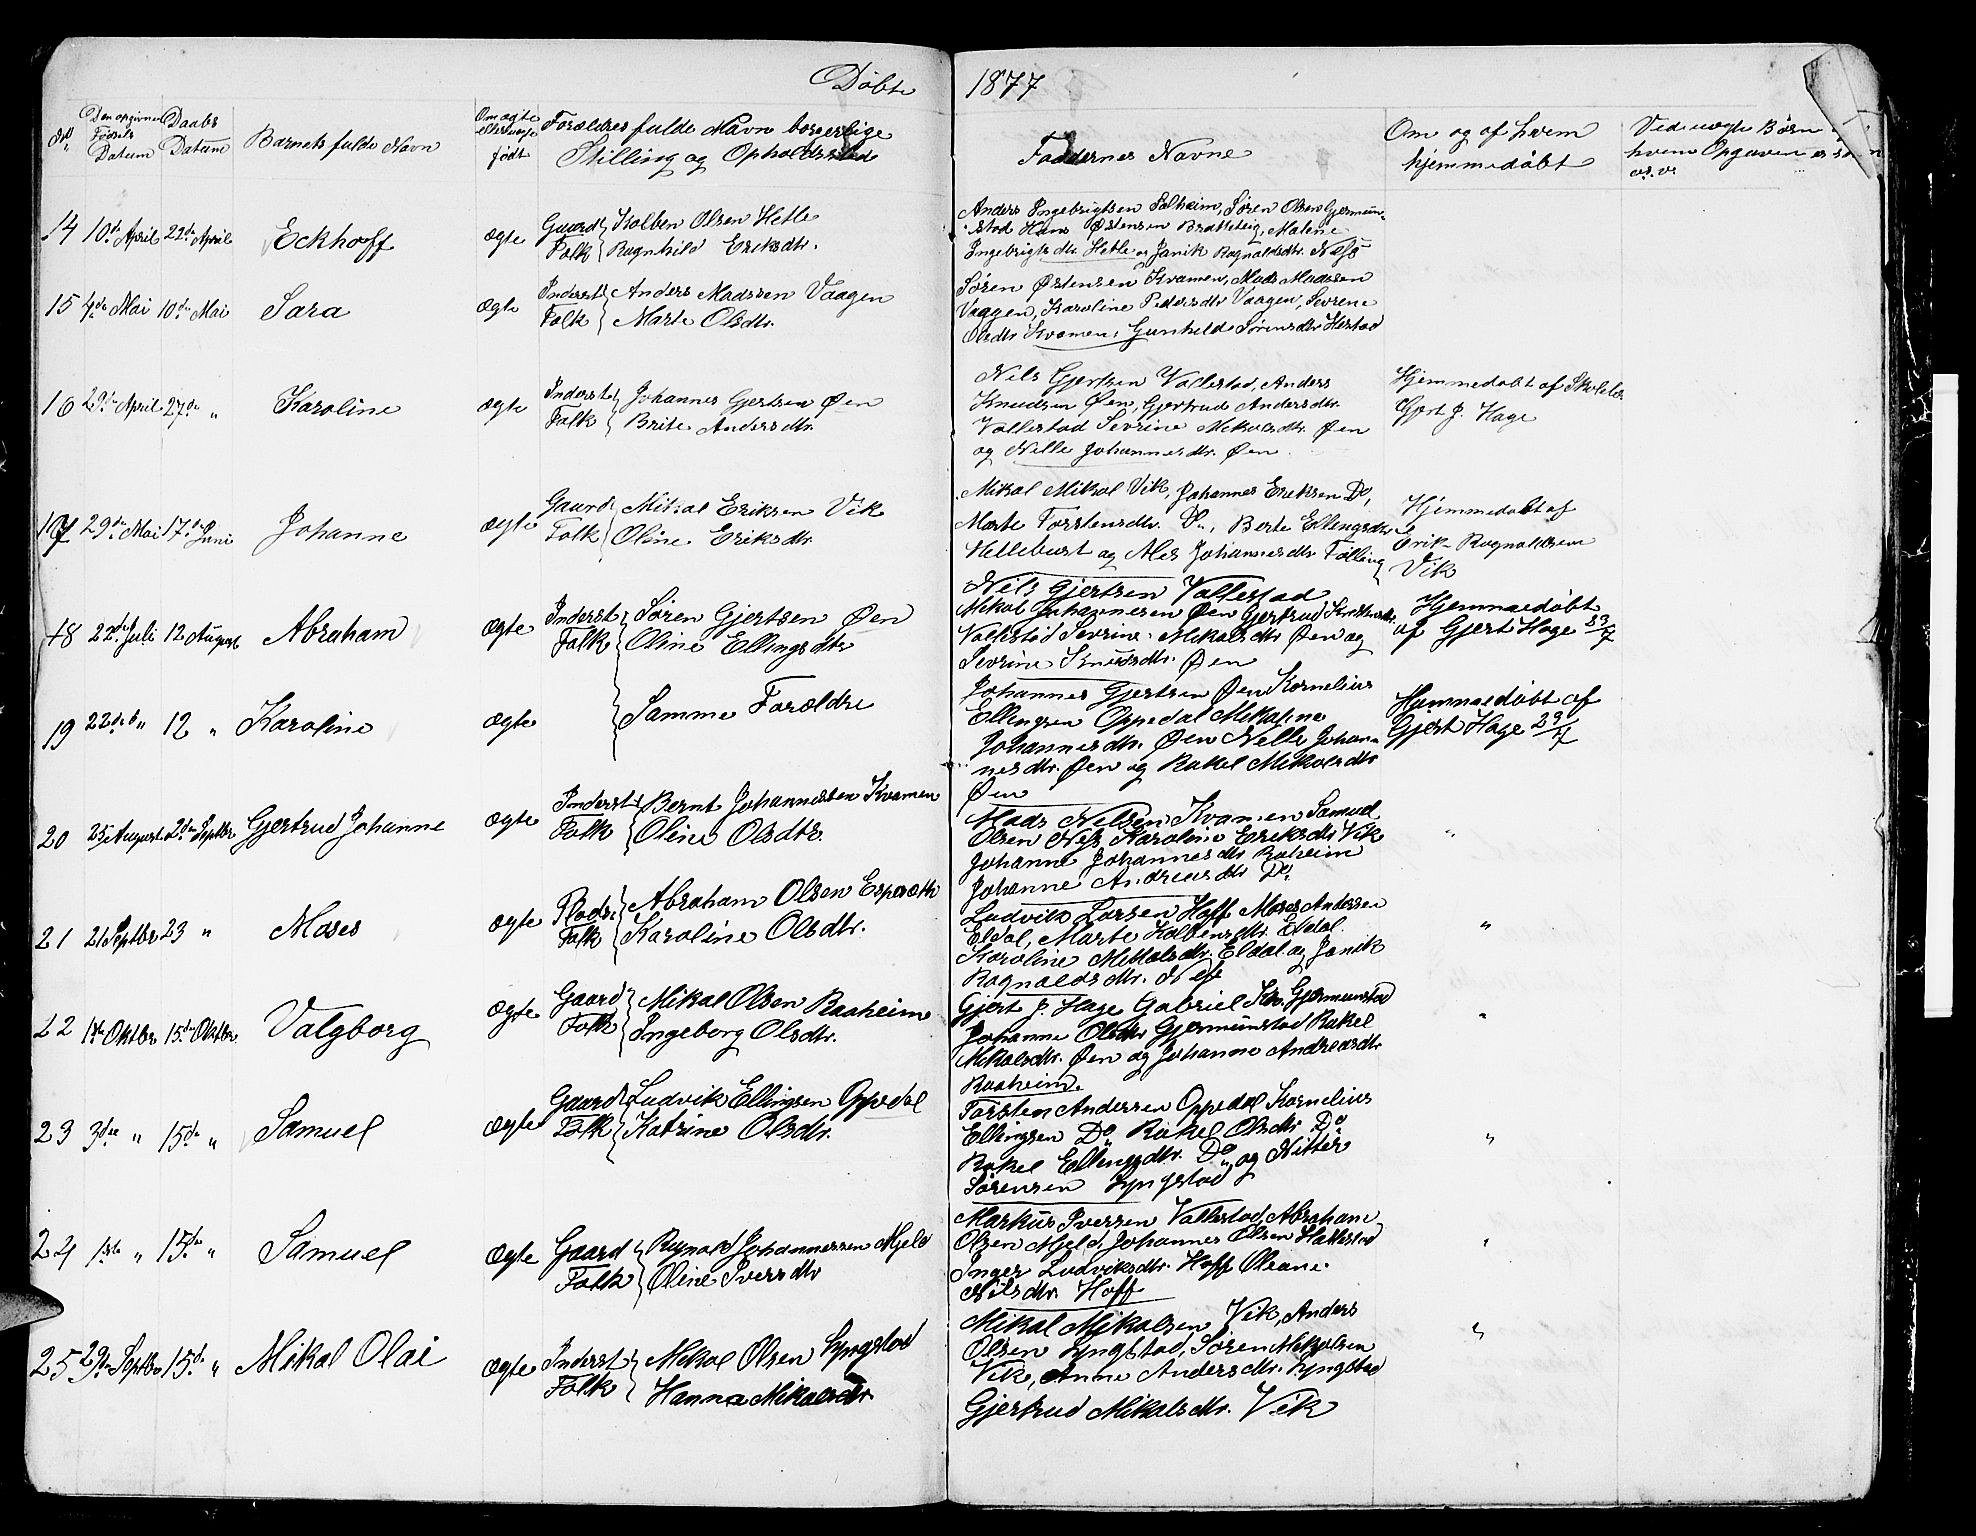 Döbte 1877
No
Den opgivne Fødsels Datum
Daabs Datum
Barnets fulde Navn
Om ægte eller uægte født
Forældres fulde Navn borgerlige
Stilling og Opholdssted
Faddernes Navne
Om og af hvem
hjemmedøbt
Ved uægte Børn
hvem Opgaven er
14 10de April 22de April Eckhoff ægte Gaard Folk Kolben Olsen Hetle
Ragnhild Eriksdtr.
Anders Ingebrigtsen Solheim, Søren Olsen Gjermun-
stad Hans Østensen Brattsteig, Malene
Ingebrigts dtr. Hetle og Janik Ragnaldsdtr. Nefs
15 4de Mai 10de Mai Sara ægte Inderst Folk Anders Madssen Vaagen
Marte Olsdtr.
Søren Østensen Kvamen, Mads Madssen
Vaagen, Karoline Pedersdtr Vaagen, Sevrene
Olsdtr Kvamen, Gunhild Sørensdtr Hestad
16 29de April 27de " Karoline ægte Inderst Folk Johannes Gjertsen Øen
Brite Andersdtr.
Nils Gjertsen Vallestad, Anders
Knudsen Øen, Gjertrud Andersdtr.
Vallestad Sevrine Mikalsdtr. Øen
og Nille Johannesdtr. Øen
Hjemmedøbt af
Gjert J. Hage
17 29de Mai 17de Juni Johanne ægte Gaard Folk Mikal Eriksen Vik
Oline Eriksdtr.
Mikal Mikal Vik, Johannes Eriksen Do,
Marte Torstensdtr. Do, Berte Ellingsdtr
Hetleburst og Ales Johannesdtr Tølling
Hjemmedøbt af
Erik Ragnaldsen
Vik
18 22de Juli 12 August Abraham ægte Inderst Folk Søren Gjertsen Øen
Oline Ellingsdtr
Nils Gjertsen Vallestad
Mikal Johannesen Øen Gjertrud
Vallestad Sevrine Mikalsdtr Øen og
Sevrine Knudsdtr. Øen
Hjemmedøbt
af Gjert Hage 23/7
19 22de " 12 " Karoline ægte Samme Forældre
Johannes Gjertsen Øen Kornelius
Ellingsen Oppedal Mikaline
Johannesdtr. Øen Nelle Johan-
nesdtr. Øen og Rakel Mikalsdtr
Øen
Hjemmedøbt af
Gjert Hage 29/7
20 25 August 2den Septbr Gjertrud Johanne ægte Inderst Folk Bernt Johannessen Kvamen
Oline Olsdtr.
Mads Nilsen Kvamen Samuel
Olsen Nefs Karoline Eriksdtr Vik
Johanne Johannesdtr Raaheim
Johanne Andreasdtr Do.
"
21 21 Septbr 23 " Moses ægte Plads Folk Abraham Olsen Espesæth
Karoline Olsdtr.
Ludvik Larsen Hoff Moses Andersen
Eldal, Marte Kolbensdtr. Eldal
Karoline Mikalsdtr. Eldal og Janik
Ragnaldsdtr. Nefs
"
22 1ste Oktbr 15de Oktbr Valgborg ægte Gaard Folk Mikal Olsen Raaheim
Ingeborg Olsdtr.
Gjert J. Hage Gabriel Gjermunstad
Johanne Olsdtr Gjermunstad Rakel
Mikalsdtr. Øen og Johanne Andreasdtr
Raaheim.
"
23 3die " 15de " Samuel ægte Gaard Folk Ludvik Ellingsen Oppedal
Katrine Olsdtr.
Torsten Andersen Oppedal Kornelius
Ellingsen Do Rakel Olsdtr Do
Rakel Ellingsdtr. Do og Nitter
Sørensen Lyngstad
"
24 1ste " 15de " Samuel ægte Gaard Folk Ragnald Johannessen Mjeld
Oline Iversdtr
Markus Iversen Vallestad, Abraham
Olsen Mjeld, Johannes Olsen Hallestad
Inger Ludviksdtr. Hoff Oleane
Nilsdtr. Hoff
"
25 29de Septbr 15de " Mikal Olai ægte Inderst Folk Mikal Olsen Lyngstad
Hanna Mikalsdtr
Mikal Mikalsen Vik, Anders
Olsen Lyngstad, Søren Mikalsen
Vik, Anne Andersdtr. Lyngstad
Gjertrud Mikalsdtr. Vik
"